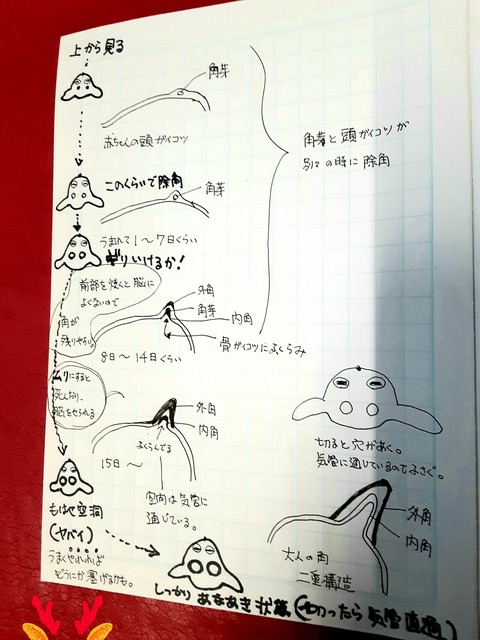 上から見る
角芽
赤ちゃんの頭ガイコツ
角芽と頭ガイコツが
別々の時に除角
このくらいで除角
角芽
うまれて1〜7日くらい
ギリいけるか!
前部を焼くと脳に
よくないので
角が
残りやすい。
外角
角芽
内角
骨ガイコツにふくらみ
8日〜14日くらい
ムリにすると
死んだり、
脳をやられる
外角
内角
ふくらんでる
15日〜
空向は気管に
通じている。
切ると穴があく。
気管に通じているのでふさぐ。
もはや空洞
(ヤバイ)
うまくやれれば
どうにか塞げるかも。
外角
内角
大人の角
二重構造
しっかりあなあき状態(切ったら気管直通)